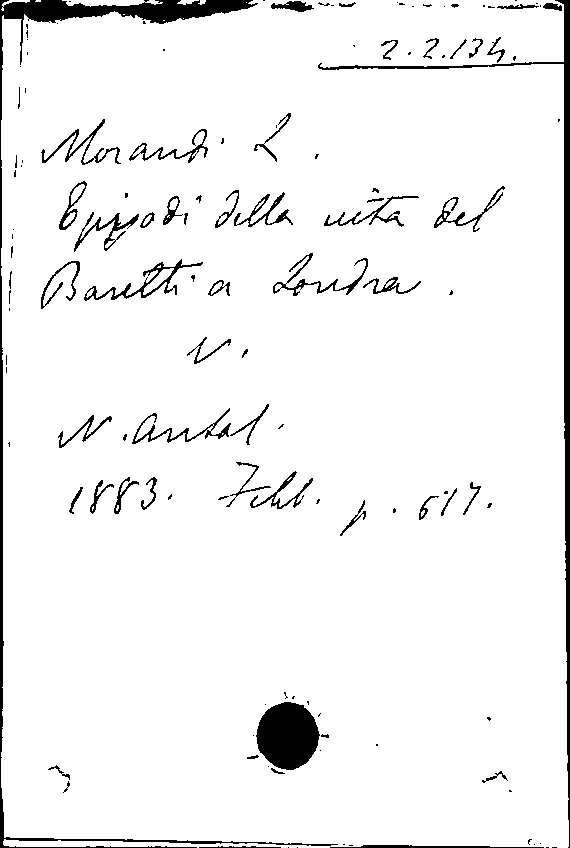 2.2.134.
Morandi L.
Episodi della vita del
Baretti a Londra.
V.
N. Antol.
1883. Febb. p. 617.